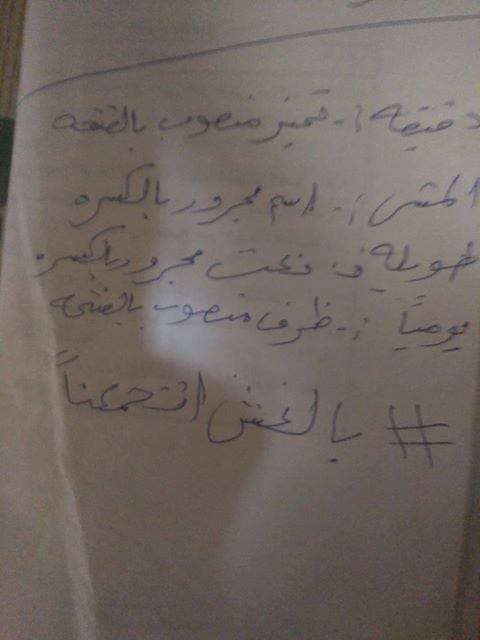 دقيقه :- تميز منصوب بالفتحه
المشى :- اسم مجرور بالكسره
طويله :- نعت مجرور بالكسره
يومياً :- ظرف منصوب بالفتحه
# بالغش اتجمعنا